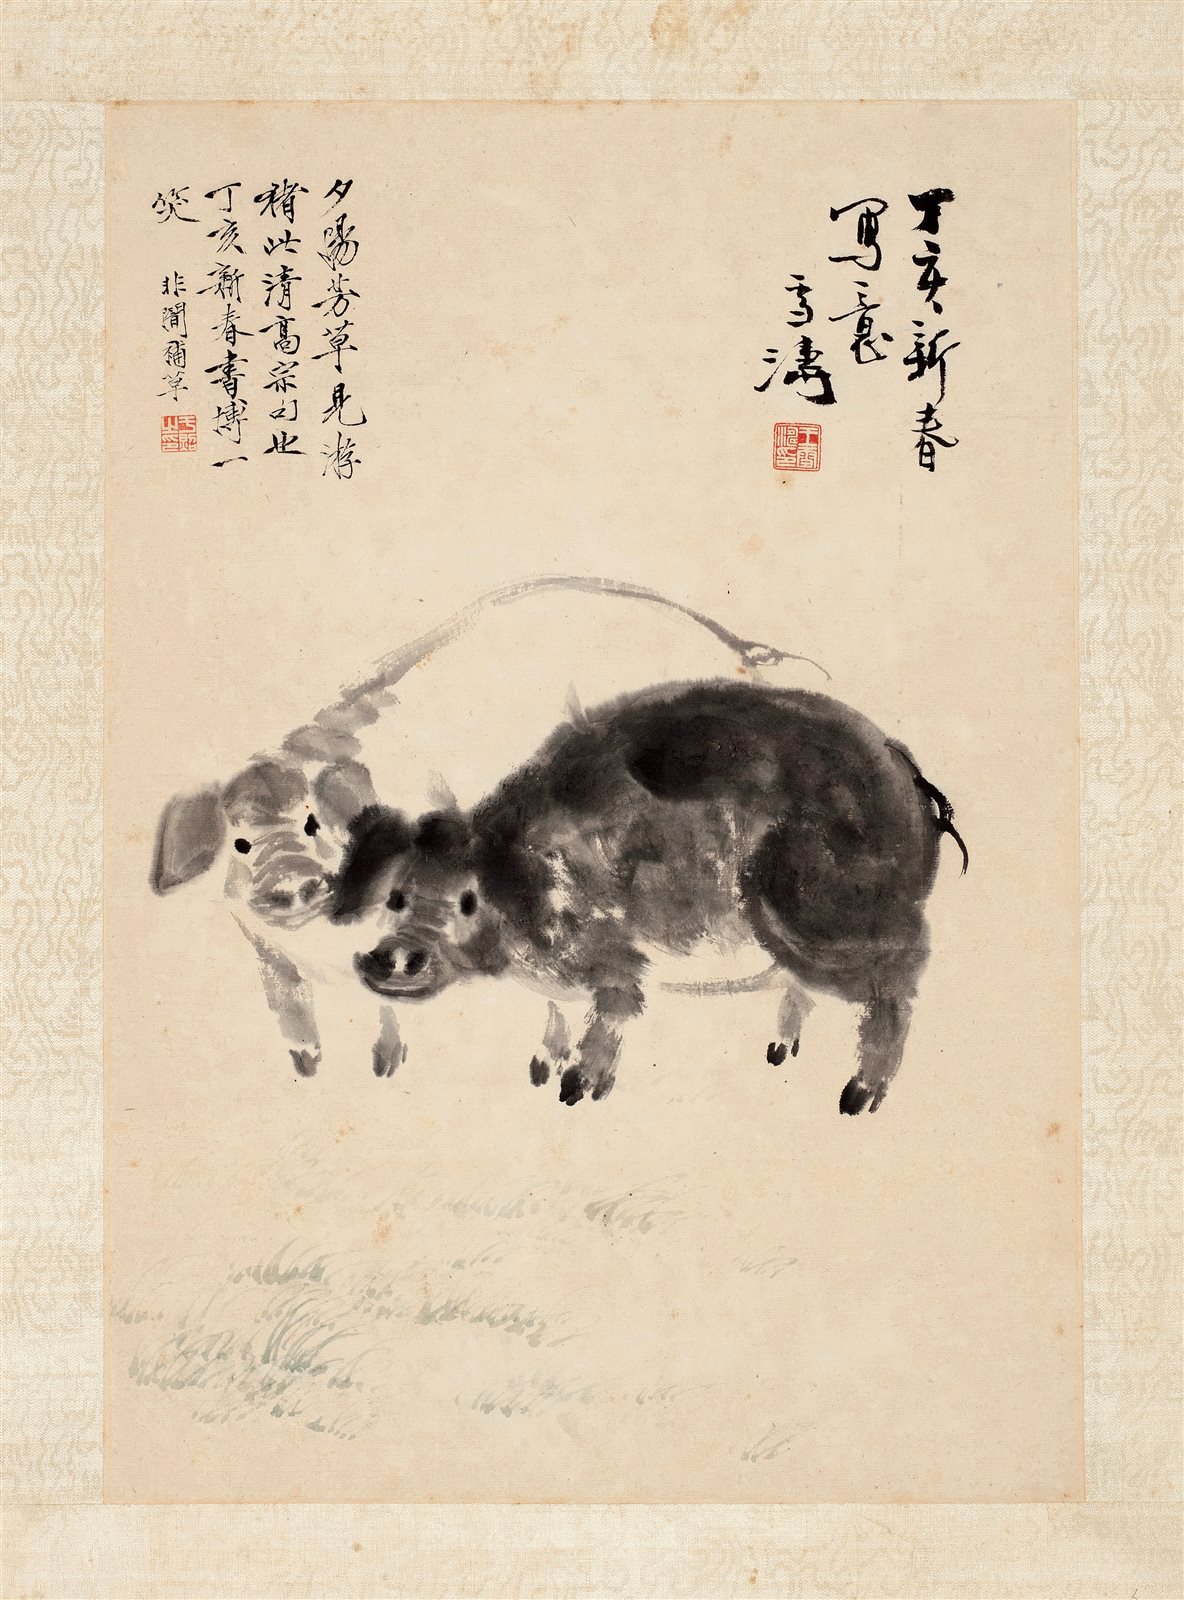 丁亥新春
寫意
雪濤
王雪濤印
夕陽芳草見游
豬此清高宗句也
丁亥新春書博一
笑
非闇補草